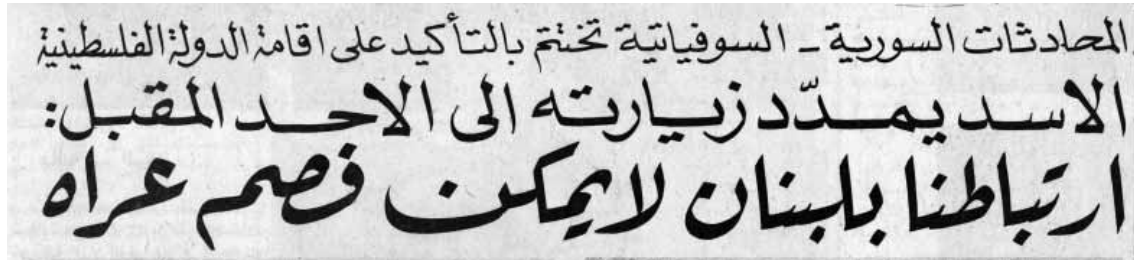 المحادثات السورية - السوفياتية تختتم بالتأكيد على اقامة الدولة الفلسطينية
الاسد يمدّد زيارته الى الاحد المقبل:
ارتباطنا بلبنان لايمكن فصم عراه